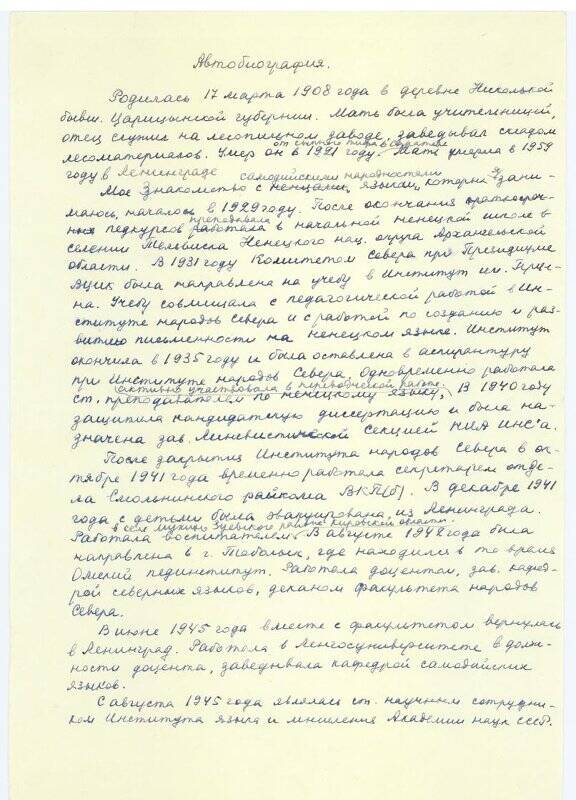 Автобиография.
Родилась 17 марта 1908 года в деревне Никольской
бывш. Царицынской губернии. Мать была учительницей,
отец служил на лесопильном заводе, заведывал складом
лесоматериалов. Умер он в 1921 году от сыпного тифа в Саратове. Мать умерла в 1959
году в Ленинграде
Мое знакомство с ненцами, самодийскими народностями языками, которыми я зани-
маюсь, началось в 1929 году. После окончания краткосроч-
ных педкурсов преподавала работала в начальной ненецкой школе в
селении Тельвиска Ненецкого нац. округа Архангельской
области. В 1931 году Комитетом Севера при Президиуме
ВЦИК была направлена на учебу в Институт им. Герце-
на. Учебу совмещала с педагогической работой в Ин-
ституте народов Севера и с работой по созданию и раз-
витию письменности на ненецком языке. Институт
окончила в 1935 году и была оставлена в аспирантуру
при Институте народов Севера, одновременно работала
ст. преподавателем по ненецкому языку, активно участвовала в переводческой работе. В 1940 году
защитила кандидатскую диссертацию и была на-
значена зав. Лингвистической секцией НИА ИНС'а.
После закрытия Института народов Севера в ок-
тябре 1941 года временно работала секретарем отде-
ла Смольнинского райкома ВКП(б). В декабре 1941
года с детьми была эвакуирована из Ленинграда.
Работала воспитателем в селе Мухино Зуевского района Кировской области. В августе 1942 года была
направлена в г. Тобольск, где находился в то время
Омский пединститут. Работала доцентом, зав. кафед-
рой северных языков, деканом факультета народов
Севера.
В июне 1945 года вместе с факультетом вернулась
в Ленинград. Работала в Ленгосуниверситете в долж-
ности доцента, заведывала кафедрой самодийских
языков.
С августа 1945 года являлась ст. научным сотрудни-
ком Института языка и мышления Академии наук СССР.